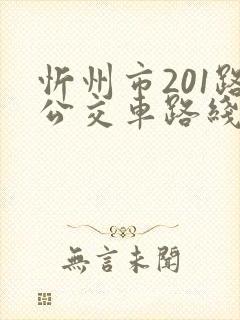 忻州市201路
公交車路綫
無言未聞